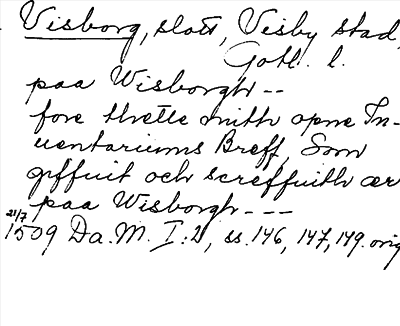 Visborg, slott, Visby stad,
Gotl. l.
paa Wisborgh --
fore thette mith opne In-
uentariums Breff, Som
giffuit och screffuith ær
paa Wisborgh ---
21/7
1509 Da. M. I:2, ss. 146, 147, 149. orig